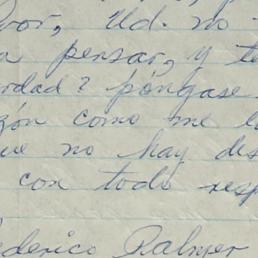 vor, Ud. no
a pensar, y te
rdad? póngase
zón como me l
ue no hay des
con todo resp
ederico Palmer